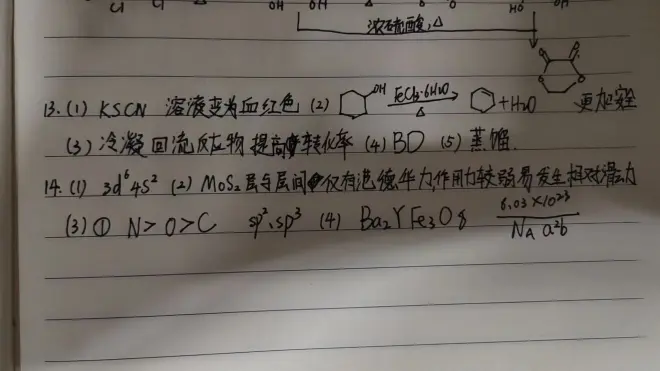 Cl Cl OH OH HO OH
浓硫酸,△
13.(1) KSCN 溶液变为血红色 (2) OH FeCl3·6H2O △ + H2O 更加安全
(3) 冷凝回流反应物提高转化率 (4) BD (5) 蒸馏.
14.(1) 3d⁶4s² (2) MoS2层与层间仅有范德华力,作用力较弱易发生相对滑动
(3) ① N>O>C sp²、sp³ (4) Ba2YFe3O8 6.03×10²³ / NA a²b